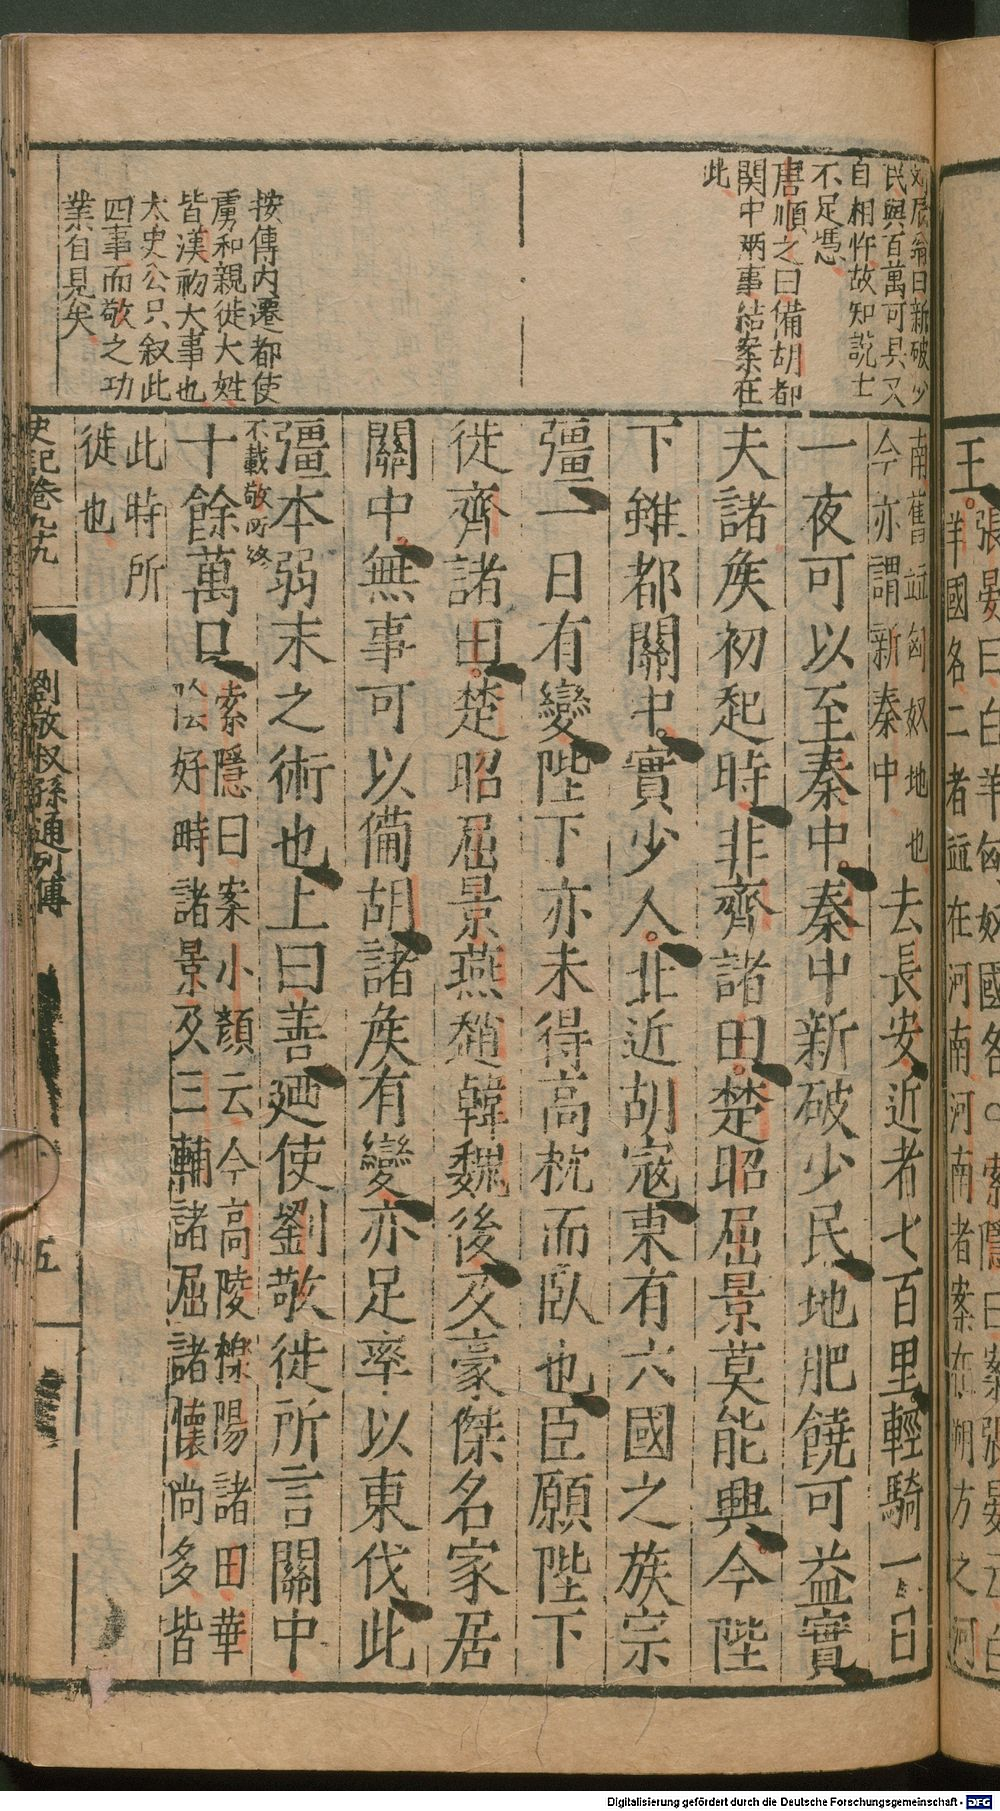 王張晏曰白羊匈奴國名○索隱曰案張晏云白
羊國名二者竝在河南河南者案在朔方之河
劉辰翁曰新破少
民與百萬可具又
自相忤故知說士
不足憑
唐順之曰備胡都
關中兩事結案在
此
按傳內遷都使
虜和親徙大姓
皆漢初大事也
太史公只叙此
四事而敬之功
業自見矣
南舊竝匈奴地也
今亦謂新秦中
去長安近者七百里輕騎一日
一夜可以至秦中秦中新破少民地肥饒可益實
夫諸矦初起時非齊諸田楚昭屈景莫能興今陛
下雖都關中實少人北近胡寇東有六國之族宗
彊一日有變陛下亦未得高枕而臥也臣願陛下
徙齊諸田楚昭屈景燕趙韓魏後及豪傑名家居
關中無事可以備胡諸矦有變亦足率以東伐此
彊本弱末之術也上曰善廼使劉敬徙所言關中
不載敬所終
十餘萬口
索隱曰案小顏云今高陵櫟陽諸田華
陰好畤諸景及三輔諸屈諸懷尚多皆
此時所
徙也
史記卷九十九
劉敬叔孫通列傳
五
Digitalisierung gefördert durch die Deutsche Forschungsgemeinschaft - DFG